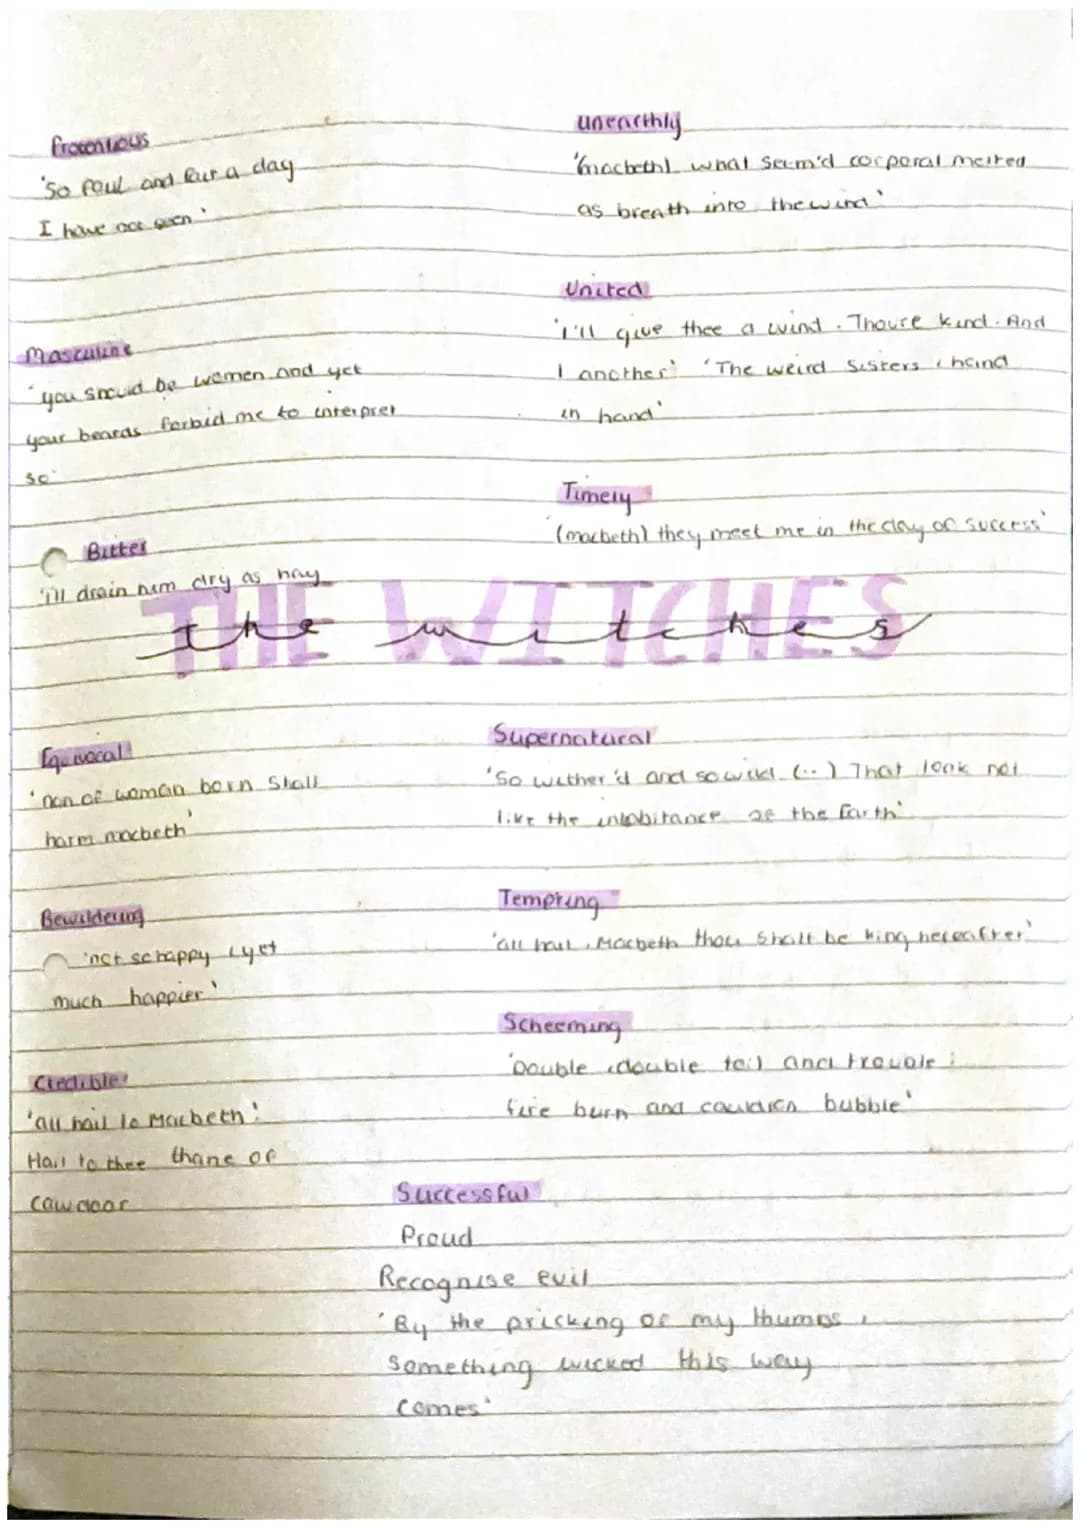 'So foul and fair a day
I have not seen'
Masculine
'you should be women and yet
your beards forbid me to interpret
so'
Bitter
'i'll drain him dry as hay
unearthly
'(macbeth) what seem'd corporal melted
as breath into the wind'
United
'I'll give thee a wind. Thou're kind. And
I another' 'The weird Sisters, hand
in hand'
Timely
'(macbeth) they meet me in the day of success'
THE WITCHES
the witches
Equivocal
'non of woman born Shall
harm macbeth'
Bewildering
'not so happy, yet
much happier'
Credible
'all hail to Macbeth!
Hail to thee thane of
cawdoor
Supernatural
'So wither'd and so wild (..) That look not
like the inhabitance of the Earth'
Tempting
'all hail, Macbeth thou shalt be king hereafter'
Scheeming
'Double, double toil and trouble;
fire burn and cauldron bubble'
Successful
Proud
Recognise evil
'By the pricking of my thumbs,
Something wicked this way
comes'